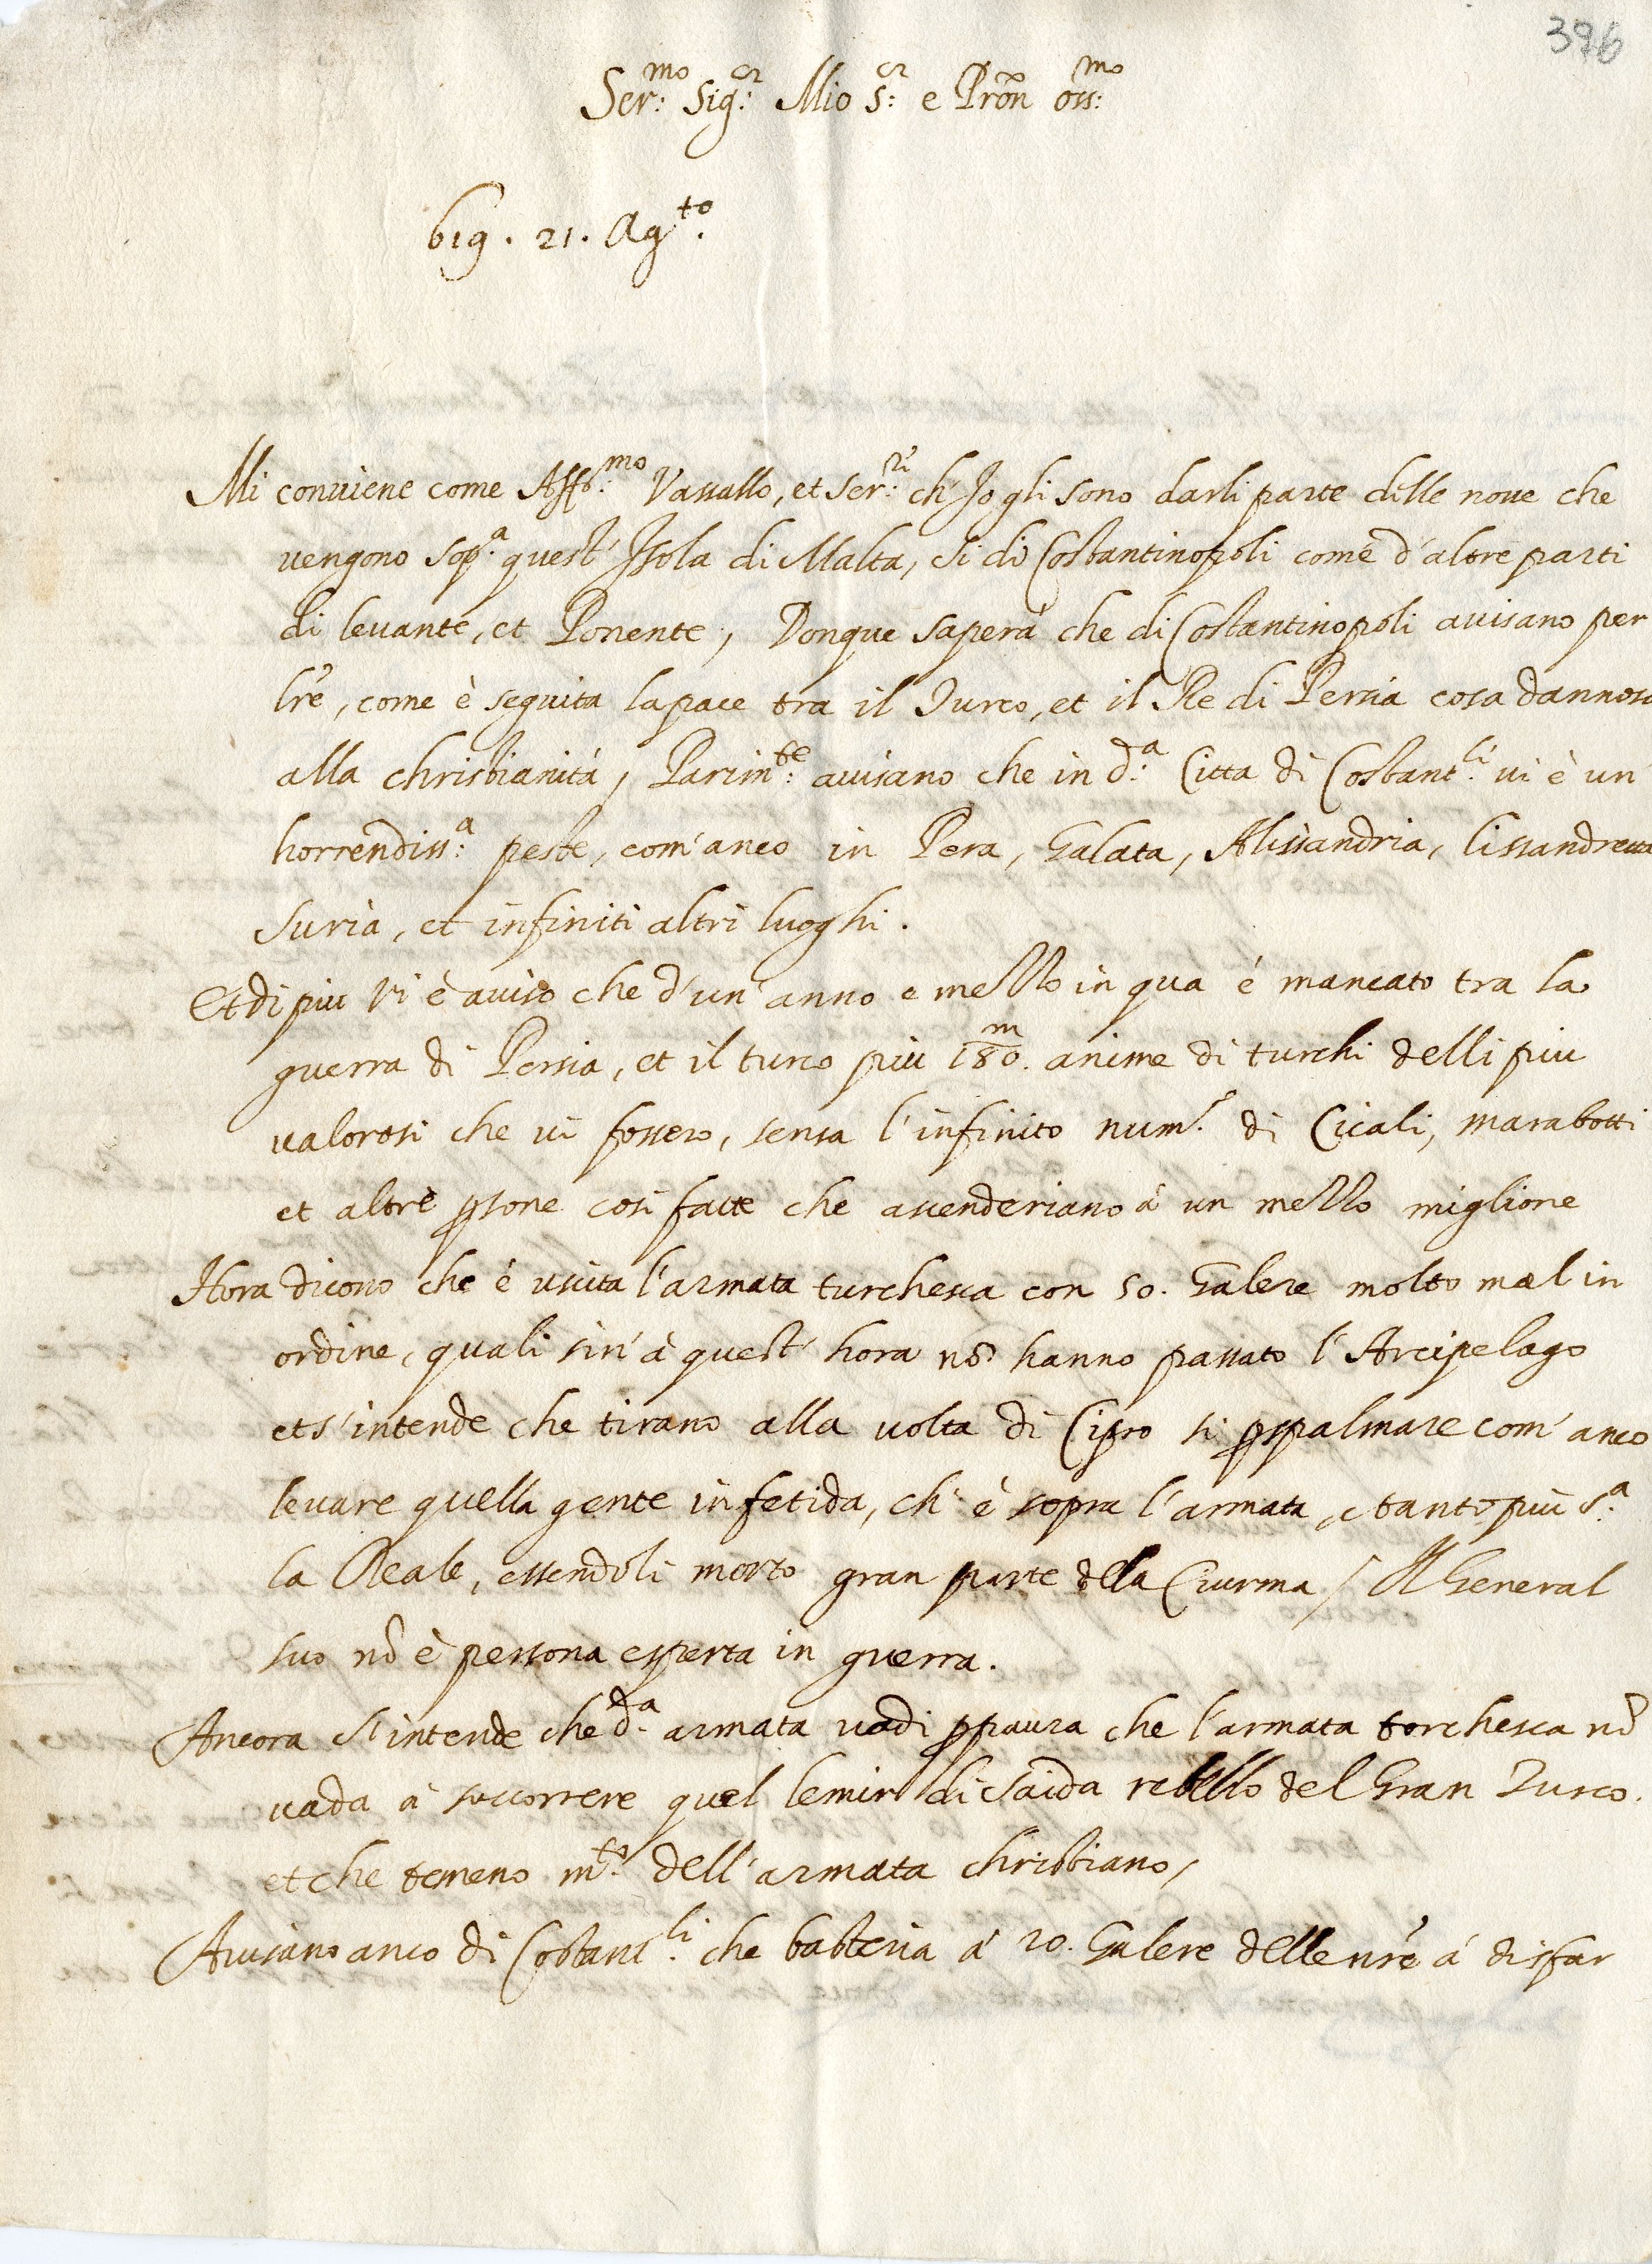 396
Ser:mo Sig:cr Mio S:cr e Prõn oss:mo
619 . 21 . Ag.to
Mi conviene come Aff:mo Vassallo, et Ser:ri ch' Io gli sono darli parte delle nove che
vengono sop:a quest' Isola di Malta, si di Costantinopoli come d'altre parti
di levante, et Ponente, Donque saperà che di Costantinopoli avisano per
lre, come è seguita la pace tra il Turco, et il Re di Persia cosa dannosa
alla christianitá, Parim:te avisano che in d:a Citta di Costant:li vi è un'
horrendiss:a peste, com'anco in Pera, Galata, Alissandria, lissandretta
Suria, et infiniti altri luoghi.
Et di piu vi è aviso che d'un'anno e mezzo in qua é mancato tra la
guerra di Persia, et il turco più 180.m anime di turchi delli piu
valorosi che vi fossero, sensa l'infinito num.o di Cicali, marabotti
et altre psone cosi fatte che ascenderiano á un mezzo miglione
Hora dicono che è uscita l'armata turchesca con 50. Galere molto mal in
ordine, quali sin' à quest' hora nõ hanno passato l'Arcipelago
et s'intende che tirano alla volta di Cipro si p spalmare com' anco
levare quella gente infetida, ch' è sopra l'armata, e tanto più s.a
la Reale, essendoli morto gran parte della Ciurma / Il General
suo nõ è persona esperta in guerra.
Ancora s'intende che d.a armata vadi p paura che l'armata torchesca nõ
vada à soccorrere quel lemir di Saida rebello del Gran Turco.
et che temeno m.to dell'armata christiano,
Avisano anco di Costant:li che basteria á 20. Galere delle nre á disfar